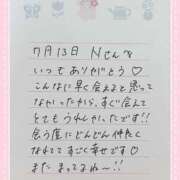 7月13日 Nさんへ
いつもありがとう♡
こんなに早く会えると思って
なかったから、すぐ会えて
とてもうれしかったです!!
会う度にどんどん仲良く
なれてすごく幸せです♡
また まってるね〜!!